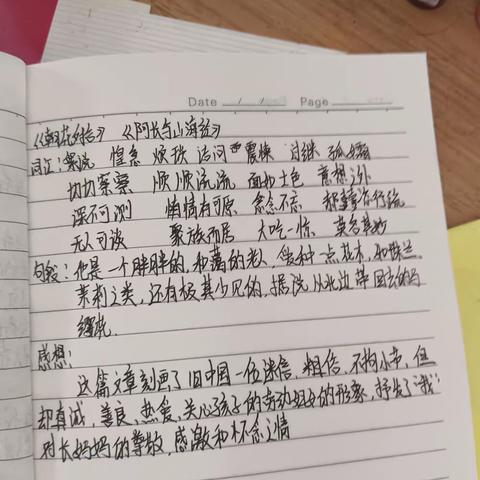 Date / / Page
《朝花夕拾》 《阿长与山海经》
词汇：絮说 惶急 烦琐 诘问 震悚 过继 孤孀
切切察察 顺顺流流 面如土色 意想之外
深不可测 情有可原 念念不忘
无人可谈 聚族而居 大吃一惊 莫名其妙
句段：他是一个胖胖的，和蔼的老人，爱种一点花木，如珠兰、
茉莉之类，还有极其少见的，据说从北边带回去的马
缨花。
感想：
这篇文章刻画了旧中国一位迷信、粗俗、不拘小节，但
却真诚，善良，热爱、关心孩子的劳动妇女的形象，抒发了“我”
对长妈妈的尊敬，感激和怀念之情